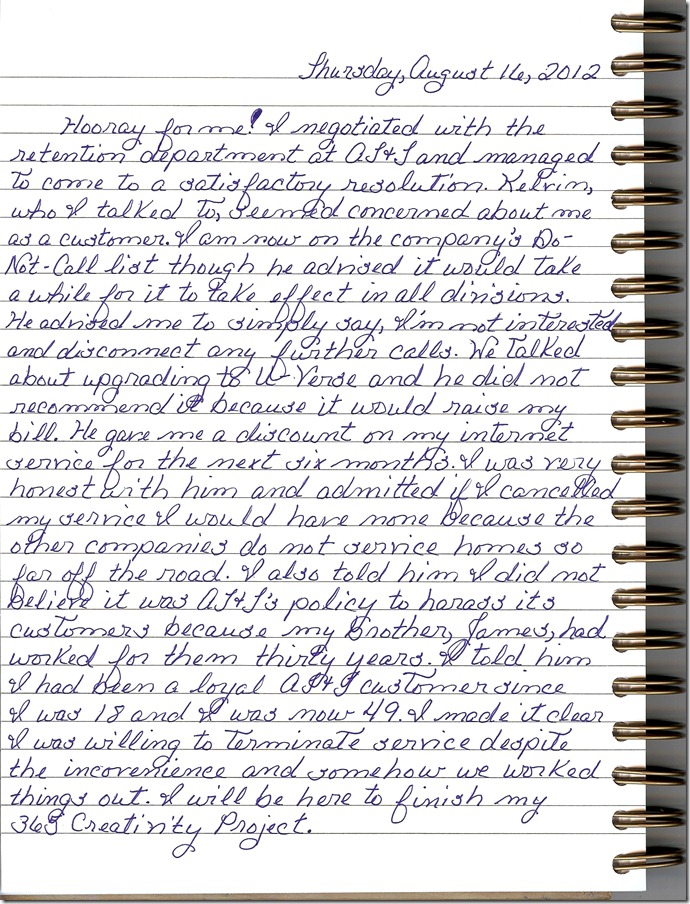 Thursday, August 16, 2012
Hooray for me! I negotiated with the
retention department at AT&T and managed
to come to a satisfactory resolution. Kelvin,
who I talked to, seemed concerned about me
as a customer. I am now on the company's Do-
Not-Call list though he advised it would take
a while for it to take effect in all divisions.
He advised me to simply say, I'm not interested
and disconnect any further calls. We talked
about upgrading to U-Verse and he did not
recommend it because it would raise my
bill. He gave me a discount on my internet
service for the next six months. I was very
honest with him and admitted if I cancelled
my service I would have none because the
other companies do not service homes so
far off the road. I also told him I did not
believe it was AT&T's policy to harass its
customers because my brother, James, had
worked for them thirty years. I told him
I had been a loyal AT&T customer since
I was 18 and I was now 49. I made it clear
I was willing to terminate service despite
the incovenience and somehow we worked
things out. I will be here to finish my
365 Creativity Project.